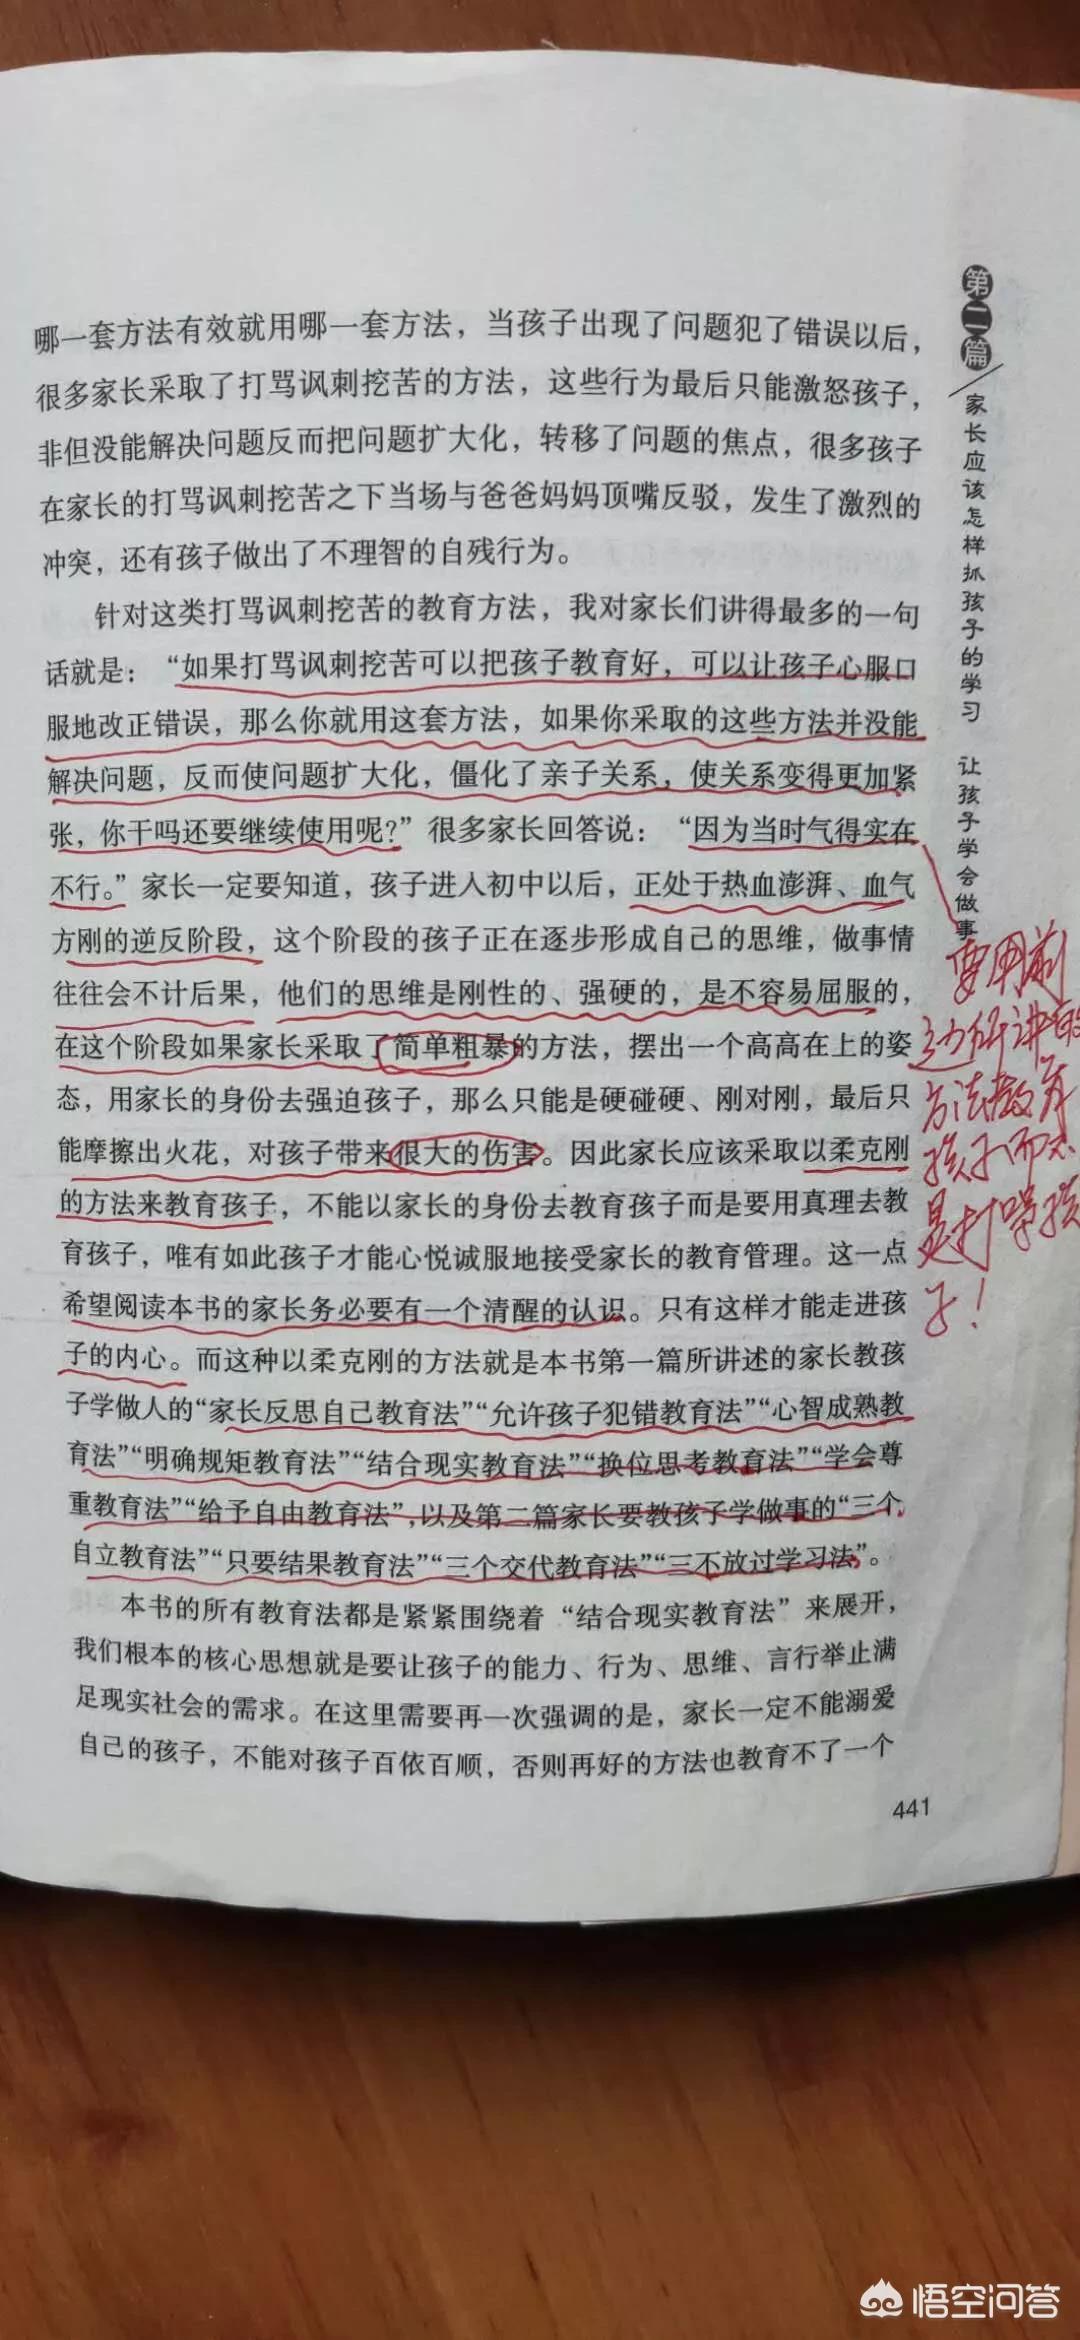 哪一套方法有效就用哪一套方法，当孩子出现了问题犯了错误以后，
很多家长采取了打骂讽刺挖苦的方法，这些行为最后只能激怒孩子，
非但没能解决问题反而把问题扩大化，转移了问题的焦点，很多孩子
在家长的打骂讽刺挖苦之下当场与爸爸妈妈顶嘴反驳，发生了激烈的
冲突，还有孩子做出了不理智的自残行为。
针对这类打骂讽刺挖苦的教育方法，我对家长们讲得最多的一句
话就是：“如果打骂讽刺挖苦可以把孩子教育好，可以让孩子心服口
服地改正错误，那么你就用这套方法，如果你采取的这些方法并没能
解决问题，反而使问题扩大化，僵化了亲子关系，使关系变得更加紧
张，你干吗还要继续使用呢？”很多家长回答说：“因为当时气得实在
不行。”家长一定要知道，孩子进入初中以后，正处于热血澎湃、血气
方刚的逆反阶段，这个阶段的孩子正在逐步形成自己的思维，做事情
往往会不计后果，他们的思维是刚性的、强硬的，是不容易屈服的，
在这个阶段如果家长采取了简单粗暴的方法，摆出一个高高在上的姿
态，用家长的身份去强迫孩子，那么只能是硬碰硬、刚对刚，最后只
能摩擦出火花，对孩子带来很大的伤害。因此家长应该采取以柔克刚
的方法来教育孩子，不能以家长的身份去教育孩子而是要用真理去教
育孩子，唯有如此孩子才能心悦诚服地接受家长的教育管理。这一点
希望阅读本书的家长务必要有一个清醒的认识。只有这样才能走进孩
子的内心。而这种以柔克刚的方法就是本书第一篇所讲述的家长教孩
子学做人的“家长反思自己教育法”“允许孩子犯错教育法”“心智成熟教
育法”“明确规矩教育法”“结合现实教育法”“换位思考教育法”“学会尊
重教育法”“给予自由教育法”，以及第二篇家长要教孩子学做事的“三个
自立教育法”“只要结果教育法”“三个交代教育法”“三不放过学习法”。
本书的所有教育法都是紧紧围绕着“结合现实教育法”来展开，
我们根本的核心思想就是要让孩子的能力、行为、思维、言行举止满
足现实社会的需求。在这里需要再一次强调的是，家长一定不能溺爱
自己的孩子，不能对孩子百依百顺，否则再好的方法也教育不了一个
441
第二篇
家长应该怎样抓孩子的学习 让孩子学会做事
要用前
边所讲的
方法教育
孩子而不
是打骂孩
子！
悟空问答